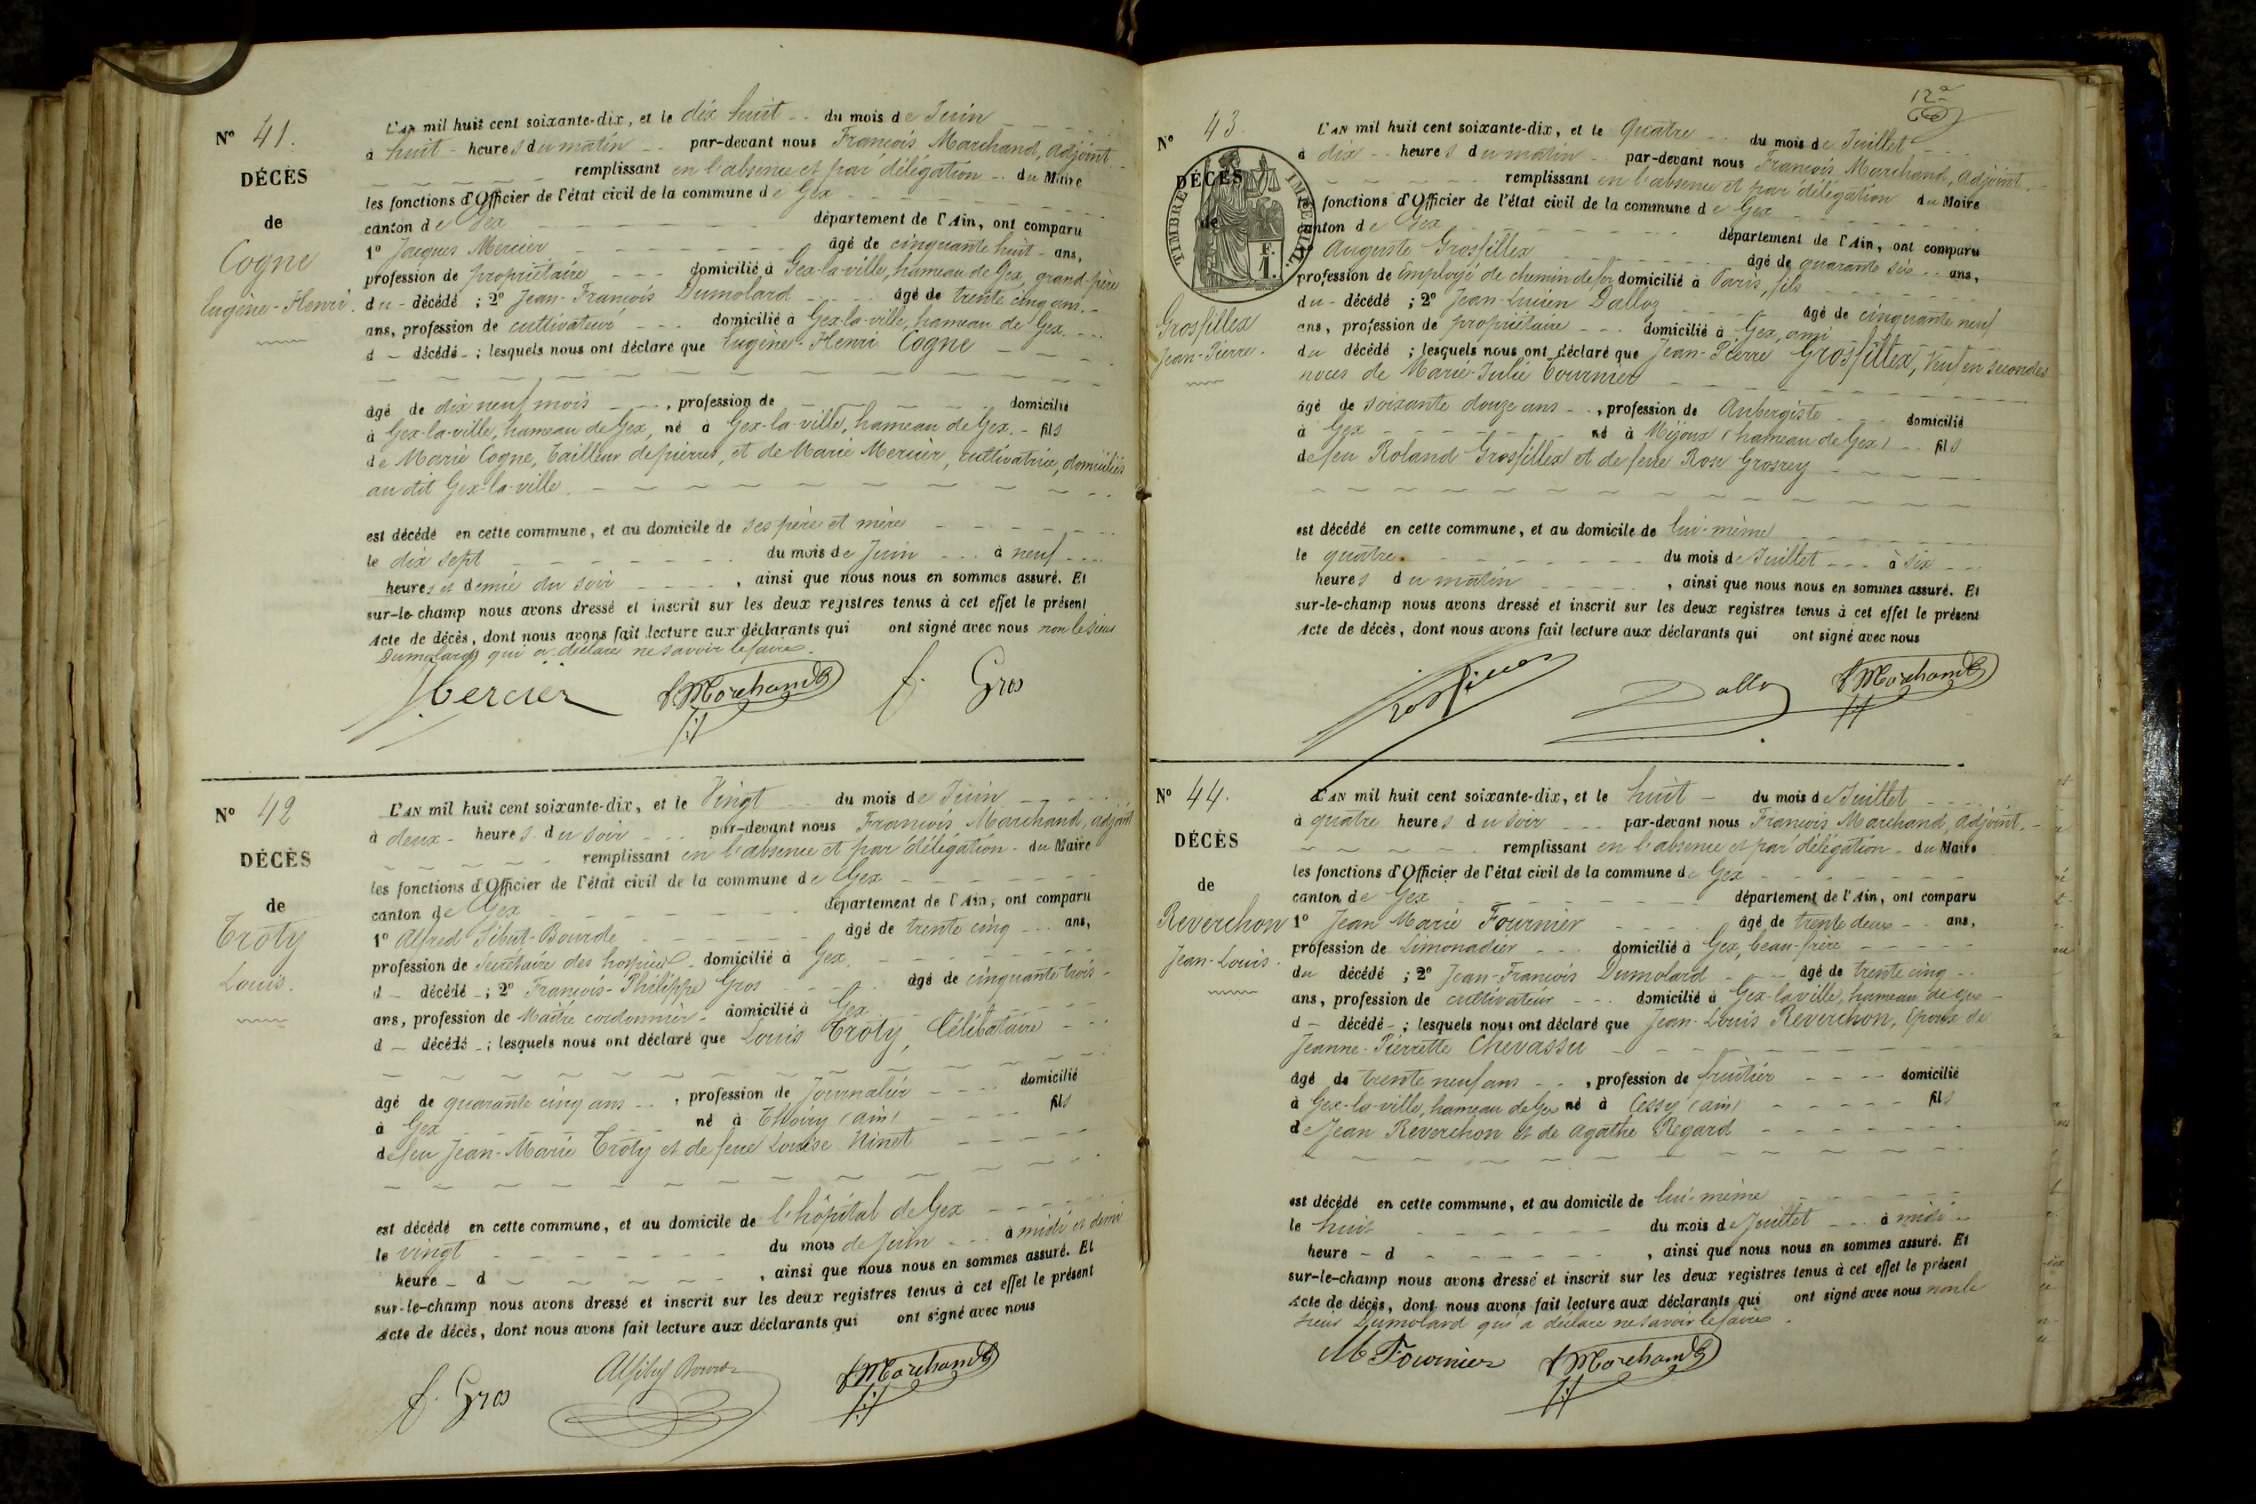 N° 41.
DÉCÈS
de
Cogne
Eugène-Henri.
L'AN mil huit cent soixante-dix, et le dix huit du mois de Juin
à huit heures du matin par-devant nous François Marchand, adjoint
remplissant en l'absence et par délégation du Maire
les fonctions d'Officier de l'état civil de la commune de Gex
canton de Gex département de l'Ain, ont comparu
1° Jacques Mercier âgé de cinquante huit ans,
profession de propriétaire domicilié à Gex-la-ville, hameau de Gex, grand-père
du décédé ; 2° Jean-François Dumolard âgé de trente cinq ans.
ans, profession de cultivateur domicilié à Gex-la-ville, hameau de Gex.
d décédé ; lesquels nous ont déclaré que Eugène-Henri Cogne
âgé de dix neuf mois , profession de domicilié
à Gex-la-ville, hameau de Gex, né à Gex-la-ville, hameau de Gex. fils
de Marie Cogne, Tailleur de pierres, et de Marie Mercier, cultivatrice, domiciliés
au dit Gex-la-ville.
est décédé en cette commune, et au domicile de ses père et mère
le dix sept du mois de Juin à neuf
heures et demie du soir , ainsi que nous nous en sommes assuré. Et
sur-le-champ nous avons dressé et inscrit sur les deux registres tenus à cet effet le présent
Acte de décès, dont nous avons fait lecture aux déclarants qui ont signé avec nous non le sieur
Dumolard qui a déclaré ne savoir le faire.
Mercier f Marchand f. Gros
N° 42
DÉCÈS
de
Troty
Louis.
L'AN mil huit cent soixante-dix, et le Vingt du mois de Juin
à deux heures du soir par-devant nous François Marchand, adjoint
remplissant en l'absence et par délégation du Maire
les fonctions d'Officier de l'état civil de la commune de Gex
canton de Gex département de l'Ain, ont comparu
1° Alfred Sibut-Bourde âgé de trente cinq ans,
profession de Secrétaire des hospices domicilié à Gex
d décédé ; 2° François-Philippe Gros âgé de cinquante trois
ans, profession de Maître cordonnier domicilié à Gex
d décédé ; lesquels nous ont déclaré que Louis Troty, Célibataire
âgé de quarante cinq ans , profession de Journalier domicilié
à Gex né à Thoiry (ain) fils
de feu Jean-Marie Troty et de feue Louise Ninet
est décédé en cette commune, et au domicile de l'hôpital de Gex
le vingt du mois de Juin à midi et demi
heure d , ainsi que nous nous en sommes assuré. Et
sur-le-champ nous avons dressé et inscrit sur les deux registres tenus à cet effet le présent
Acte de décès, dont nous avons fait lecture aux déclarants qui ont signé avec nous
f. Gros f Marchand
N° 43.
TIMBRE IMPÉRIAL
F.
1.
DÉCÈS
de
Grosfillex
Jean-Pierre.
L'AN mil huit cent soixante-dix, et le Quatre du mois de Juillet
à dix heures du matin par-devant nous François Marchand, adjoint
remplissant en l'absence et par délégation du Maire
les fonctions d'Officier de l'état civil de la commune de Gex
canton de Gex département de l'Ain, ont comparu
Auguste Grosfillex âgé de quarante six ans,
profession de Employé de chemin de fer domicilié à Paris, fils
du décédé ; 2° Jean-Lucien Dalloz âgé de cinquante neuf
ans, profession de propriétaire domicilié à Gex, ami
du décédé ; lesquels nous ont déclaré que Jean-Pierre Grosfillex, Veuf en secondes
noces de Marie-Julie Tournier
âgé de soixante douze ans , profession de Aubergiste domicilié
à Gex né à Mijoux (hameau de Gex) fils
de feu Roland Grosfillex et de feue Rose Grosrey
est décédé en cette commune, et au domicile de lui-même
le quatre du mois de Juillet à six
heures du matin , ainsi que nous nous en sommes assuré. Et
sur-le-champ nous avons dressé et inscrit sur les deux registres tenus à cet effet le présent
Acte de décès, dont nous avons fait lecture aux déclarants qui ont signé avec nous
Dalloz f Marchand
N° 44.
DÉCÈS
de
Reverchon
Jean-Louis.
L'AN mil huit cent soixante-dix, et le huit du mois de Juillet
à quatre heures du soir par-devant nous François Marchand, adjoint.
remplissant en l'absence et par délégation du Maire
les fonctions d'Officier de l'état civil de la commune de Gex
canton de Gex département de l'Ain, ont comparu
1° Jean Marie Fournier âgé de trente deux ans,
profession de Limonadier domicilié à Gex, beau-frère
du décédé ; 2° Jean-François Dumolard âgé de trente cinq
ans, profession de cultivateur domicilié à Gex-la ville, hameau de Gex
d décédé ; lesquels nous ont déclaré que Jean-Louis Reverchon, époux de
Jeanne-Pierrette Chevassu
âgé de trente neuf ans , profession de fruitier domicilié
à Gex-la-ville, hameau de Gex né à Cessy (ain) fils
de Jean Reverchon et de Agathe Regard
est décédé en cette commune, et au domicile de lui-même
le huit du mois de Juillet à midi
heure d , ainsi que nous nous en sommes assuré. Et
sur-le-champ nous avons dressé et inscrit sur les deux registres tenus à cet effet le présent
Acte de décès, dont nous avons fait lecture aux déclarants qui ont signé avec nous non le
sieur Dumolard qui a déclaré ne savoir le faire.
M Fournier f Marchand